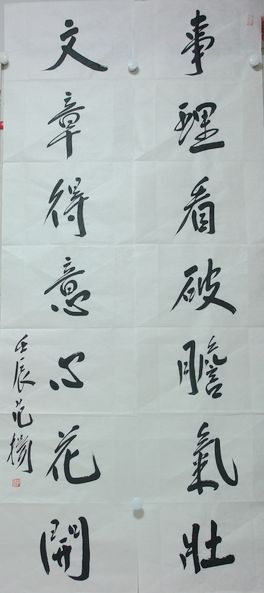 事理看破瞻氣壯
文章得意心花開
壬辰范揚